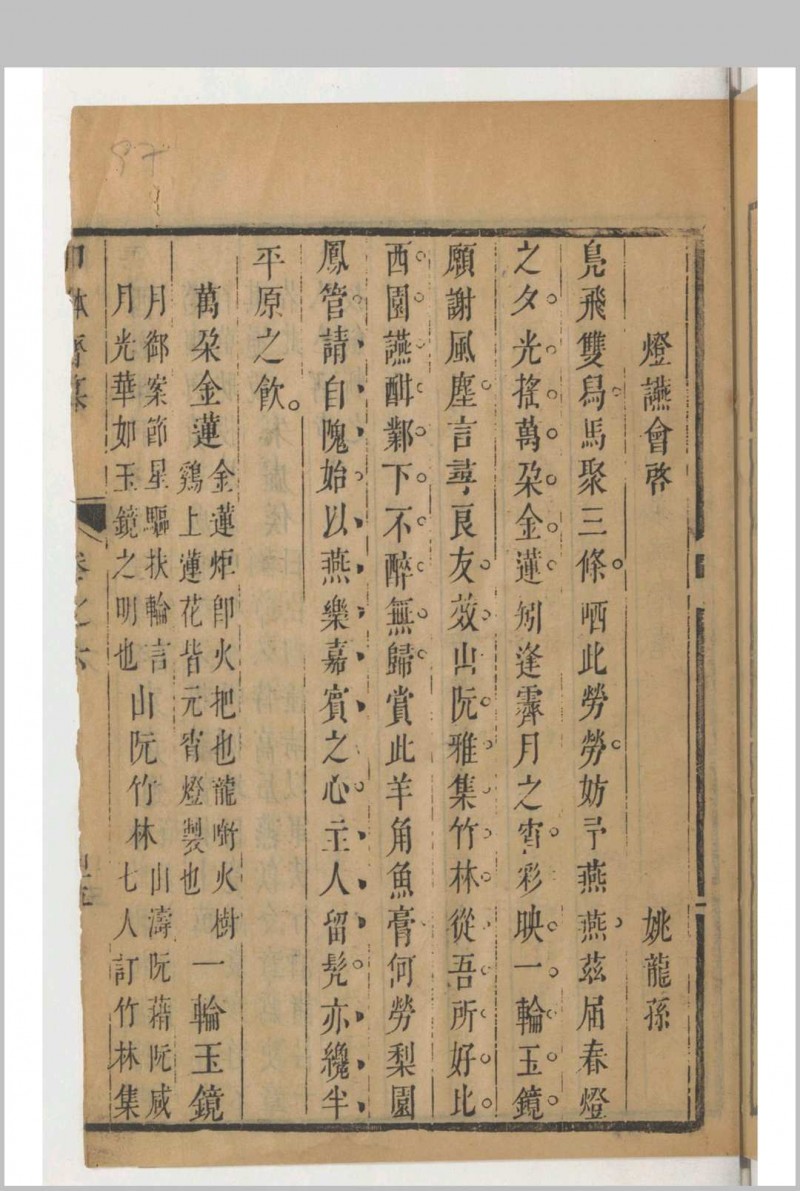 燈讌會啓　姚龍孫
鳧飛雙舃馬聚三條哂此勞勞妨予燕燕茲届春燈
之夕光搖萬朶金蓮矧逢霽月之宵彩映一輪玉鏡
願謝風塵言尋良友效山阮雅集竹林從吾所好比
西園讌酣鄴下不醉無歸賞此羊角魚膏何勞梨園
鳳管請自隗始以燕樂嘉賓之心主人留髡亦纔半
平原之飲
萬朶金蓮金蓮炬卽火把也龍啣火樹
鷄上蓮花皆元宵燈製也一輪玉鏡
月御案節星驅扶輪言
月光華如玉鏡之明也山阮竹林山濤阮藉阮咸
七人訂竹林集
卷之六
97